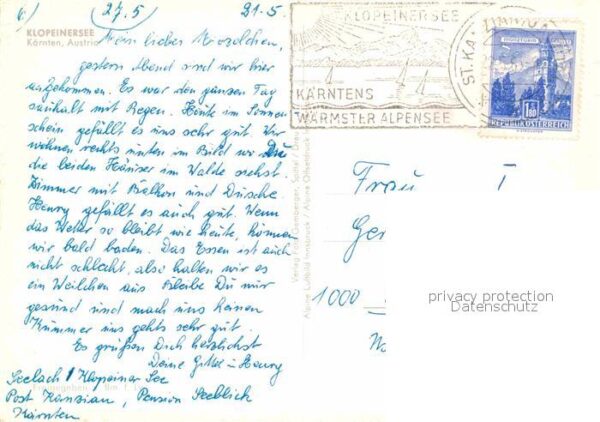 6) 27.5 21-5
KLOPEINERSEE
Kärnten, Austria
Mein liebes
gestern Abend sind wir hier
angekommen. Es war den ganzen Tag
saukalt mit Regen. Heute im Sonnen
schein gefällt es uns sehr gut. Wir
wohnen rechts unten im Bild wo Du
die beiden Häuser im Walde siehst.
Zimmer mit Balkon und Dusche
Henry gefällt es auch gut. Wenn
das Wetter so bleibt wie heute, können
wir bald baden. Das Essen ist auch
nicht schlecht, also halten wir es
ein Weilchen aus Bleibe Du mir
gesund und mach uns keinen
Kummer uns gehts sehr gut.
Es grüßen Dich herzlichst
Deine Gitta u Henry
Seelach / Klopeiner See
Post Kanzian, Pension Seeblick
Kärnten
KLOPEINERSEE
KÄRNTENS
WÄRMSTER ALPENSEE
ST. KANZIAN
1.80
REPUBLIK ÖSTERREICH
Alpine Luftbild Innsbruck / Alpine Offsetdruck
Frau T
Ger
1000
privacy protection
Datenschutz